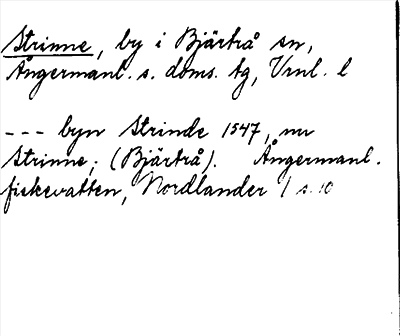 Strinne, by i Bjärtrå sn,
Ångermanl. s. doms. tg, Vrnl. l
--- byn Strinde 1547, nu
Strinne; (Bjärtrå). Ångermanl.
fiskevatten, Nordlander 1 s. 10